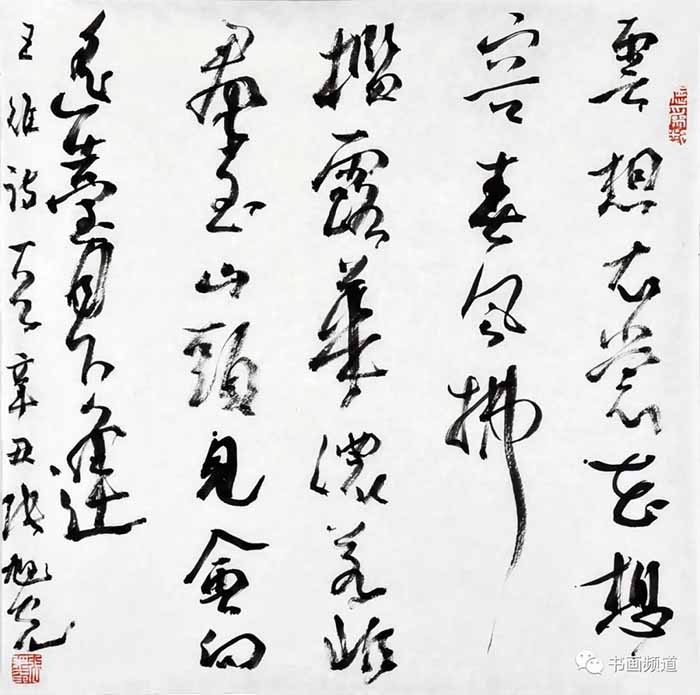 雲想衣裳花想
容春風拂
檻露華濃若非
羣玉山頭見會向
瑶臺月下逢
王維詩一首辛丑張旭光
书画频道